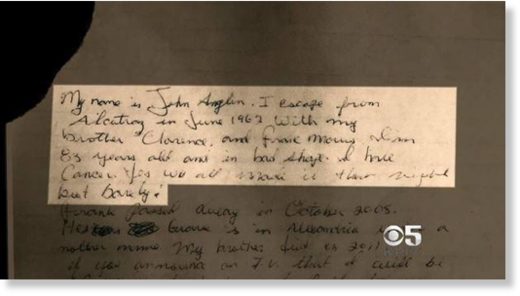 My name is John Anglin. I escape from
Alcatraz in June 1962 With my
brother Clarence, and Frank Morris. I'm
83 years old and in bad shape. I have
Cancer. Yes we all made it that night
but barely!
Frank passed away in October 2005.
His grave is in Alexandria a
nother name. My brother died in 2011
if you announce on T.V. that I will be
5